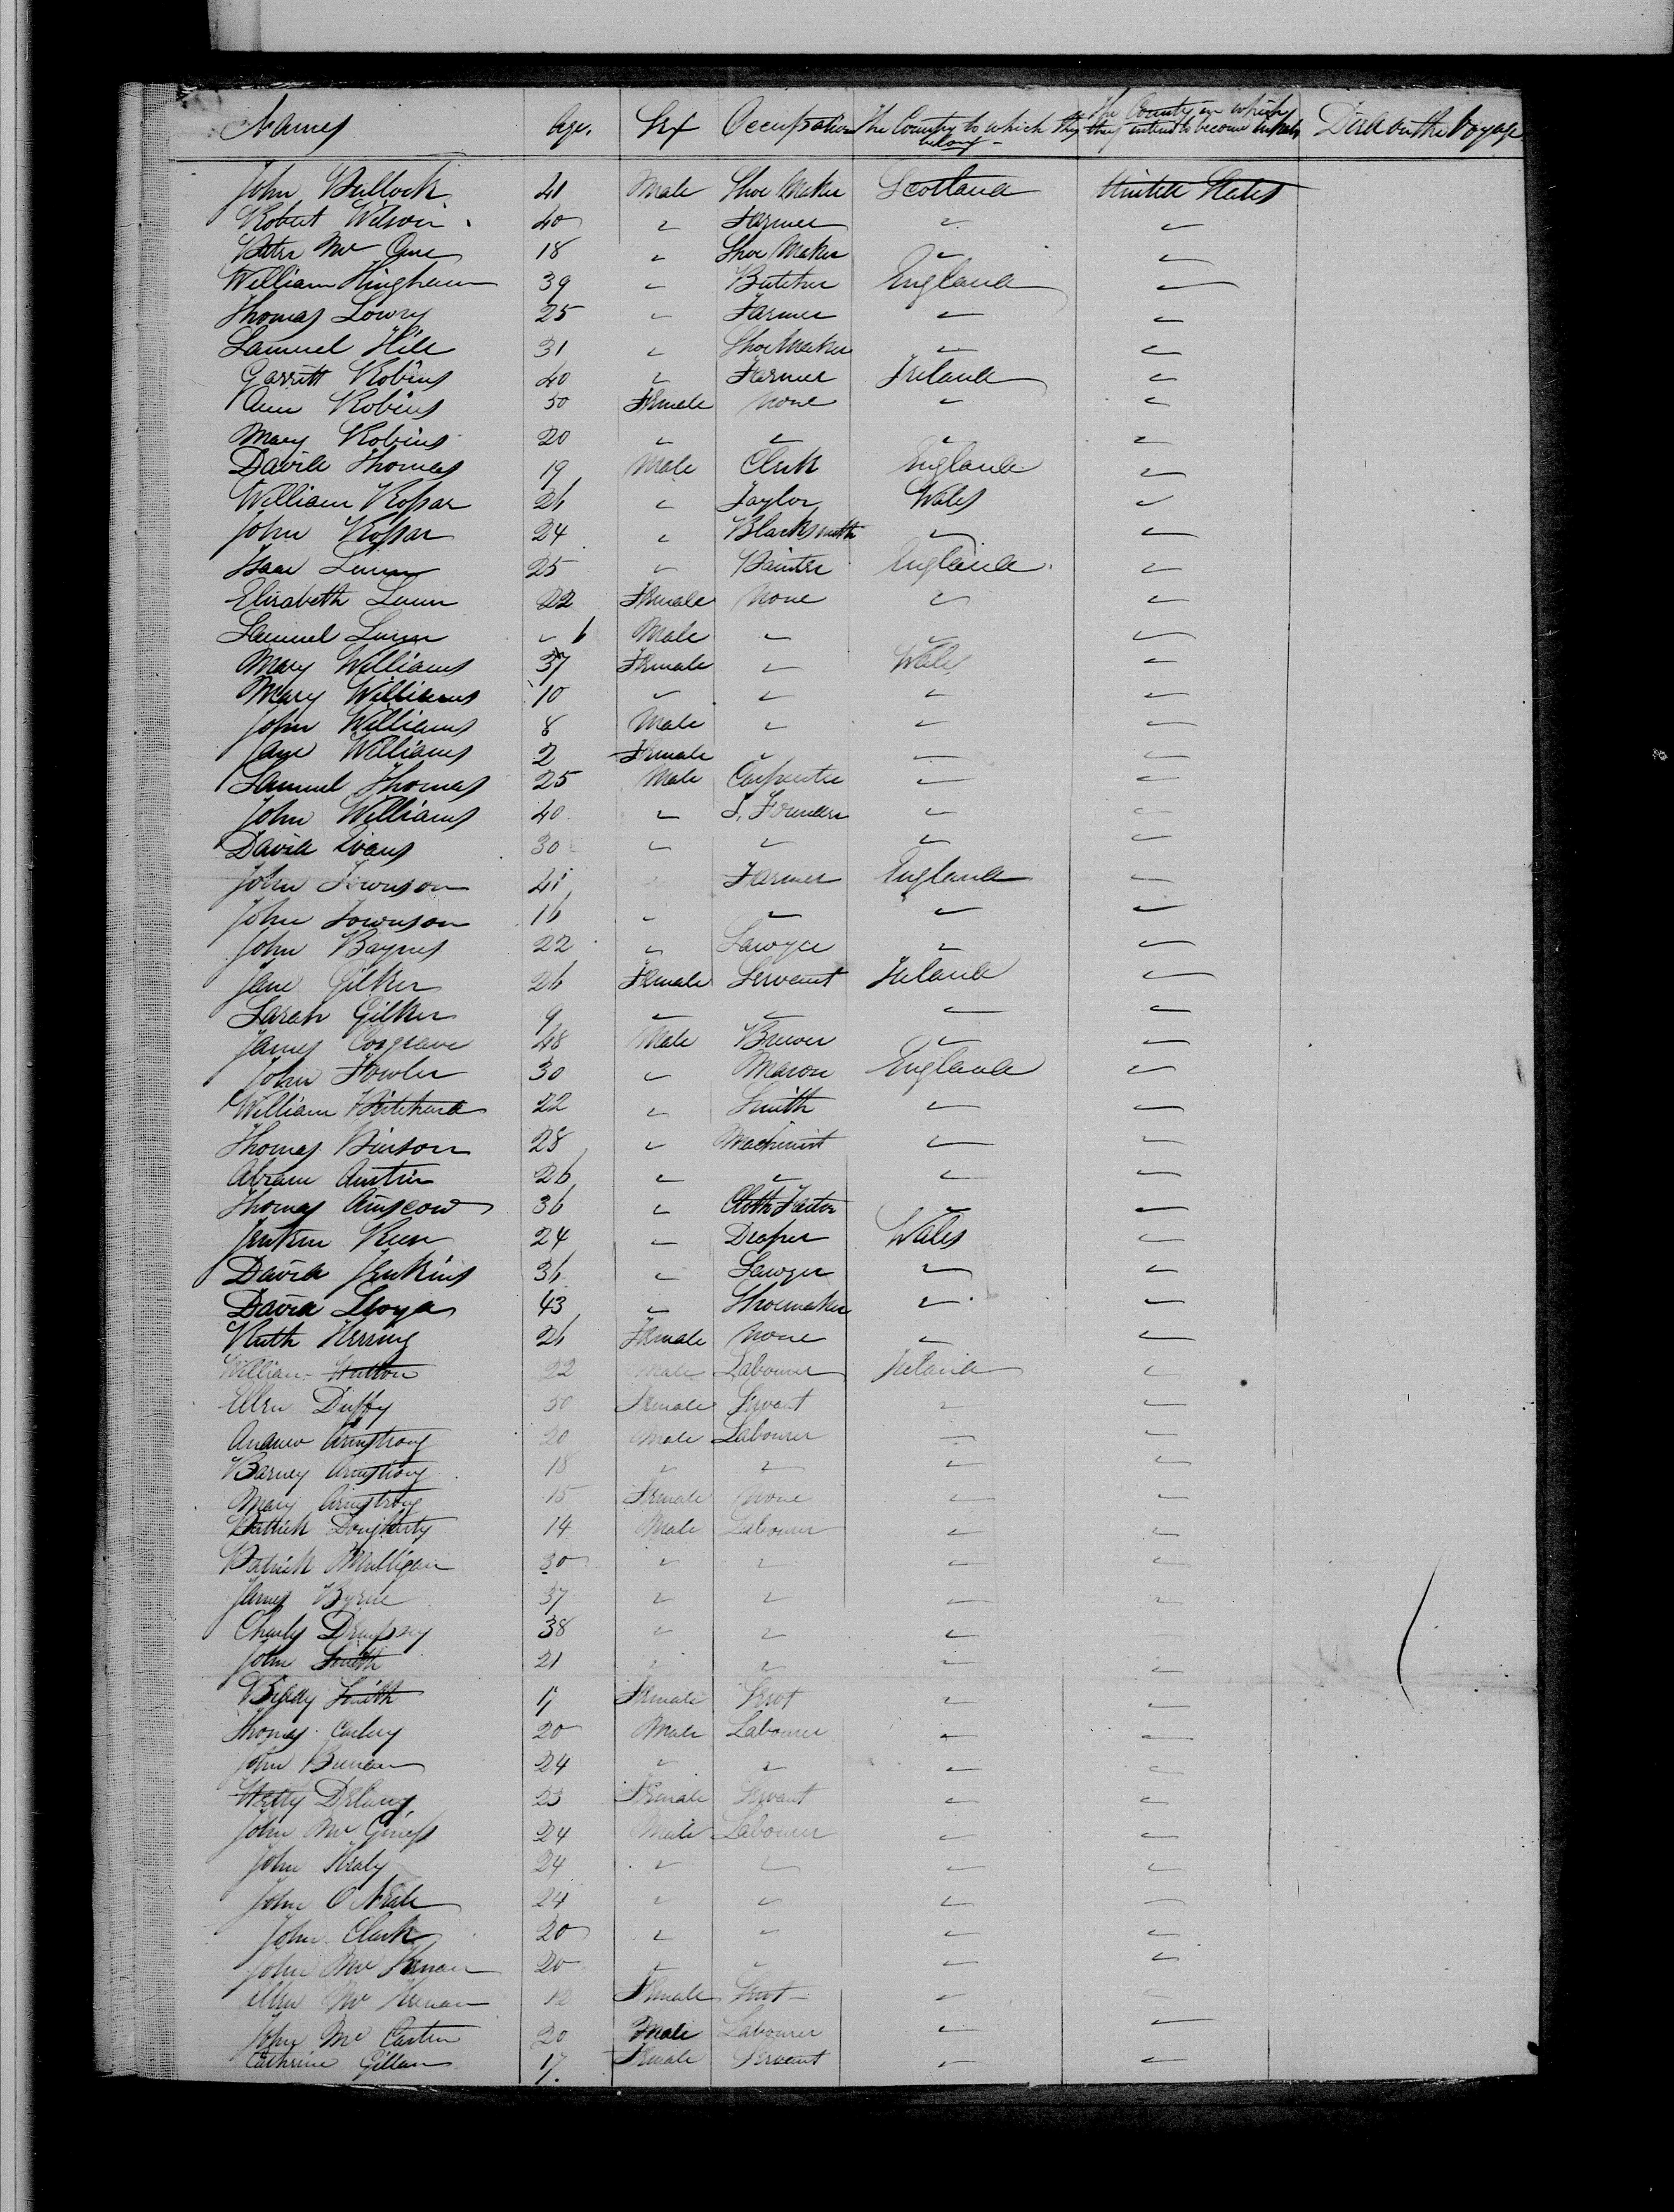 Names Age. Sex Occupation The Country to which they belong - The County in which they intend to become inhab Died on the Voyage
John Bullock 41 Male Shoe Maker Scotland United States
Robert Wilson 40 " Farmer " "
Peter Mc 18 " Shoe Maker " "
William Hingham 39 " Butcher England "
Thomas Lowry 25 " Farmer " "
Samuel Hill 31 " Shoe Maker " "
Garritt Robins 40 " Farmer Ireland "
Ann Robins 50 Female None " "
Mary Robins 20 " " " "
David Thomas 19 Male Clerk England "
William Rossar 26 " Taylor Wales "
John Rossar 24 " Blacksmith " "
Isaac Lunn 25 " Painter England "
Elizabeth Lunn 22 Female None " "
Samuel Lunn " 6 Male " " "
Mary Williams 37 Female " Wales "
Mary Williams 10 " " " "
John Williams 8 Male " " "
Jane Williams 2 Female " " "
Samuel Thomas 25 Male Carpenter " "
John Williams 40 " I. Founder " "
David Evans 30 " " " "
John Townson 41 " Farmer England "
John Townson 16 " " " "
John Baynes 22 " Sawyer " "
Jane Gilker 26 Female Servant Ireland "
Sarah Gilker 9 " " " "
James Cosgrave 48 Male Brewer " "
John Fowler 30 " Mason England "
William Pritchard 22 " Smith " "
Thomas Vinson 28 " Machinist " "
Abram Austin 26 " " " "
Thomas Ainscow 36 " Cloth Factor " "
Jenkin Rees 24 " Draper Wales "
David Jenkins 36 " Sawyer " "
David Lloyd 43 " Shoemaker " "
Ruth Herring 26 Female None " "
William Hutton 22 Male Labourer Ireland "
Ellen Duffy 50 Female Servant " "
Andrew Armstrong 20 Male Labourer " "
Barney Armstrong 18 " " " "
Mary Armstrong 15 Female None " "
Patrick Dougherty 14 Male Labourer " "
Patrick Mulligan 30 " " " "
James Byrne 37 " " " "
Charly Dempsey 38 " " " "
John Smith 21 " " " "
Biddy Smith 17 Female Servt " "
Thomas 20 Male Labourer " "
John 24 " " " "
Delany 23 Female Servant " "
John Mc Guiness 24 Male Labourer " "
John Healy 24 " " " "
John O Neale 24 " " " "
John Clark 20 " " " "
John Mc 20 " " " "
Ellen Mc 12 Female Servt " "
John Mc Carten 20 Male Labourer " "
Cathrine Gillan 17. Female Servant " "